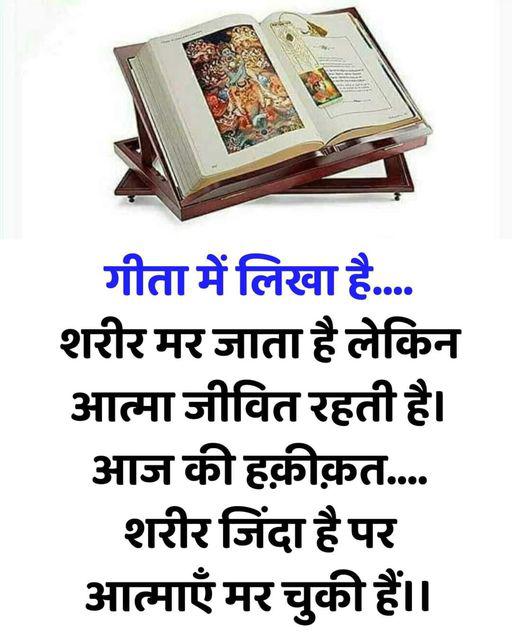 गीता में लिखा है....
शरीर मर जाता है लेकिन
आत्मा जीवित रहती है।
आज की हक़ीक़त....
शरीर जिंदा है पर
आत्माएँ मर चुकी हैं।।